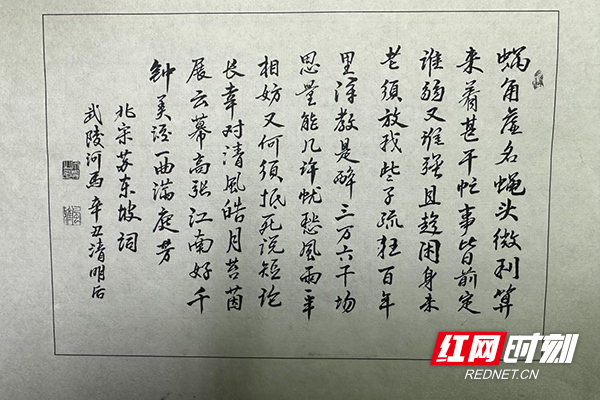 蜗角虚名蝇头微利算
来着甚干忙事皆前定
谁弱又谁强且趁闲身未
老须放我些子疏狂百年
里浑教是醉三万六千场
思量能几许忧愁风雨一半
相妨又何须抵死说短论
长幸对清风皓月苔茵
展云幕高张江南好千
钟美酒一曲满庭芳
北宋苏东坡词
武陵河马辛丑清明后
红网时刻
REDNET.CN